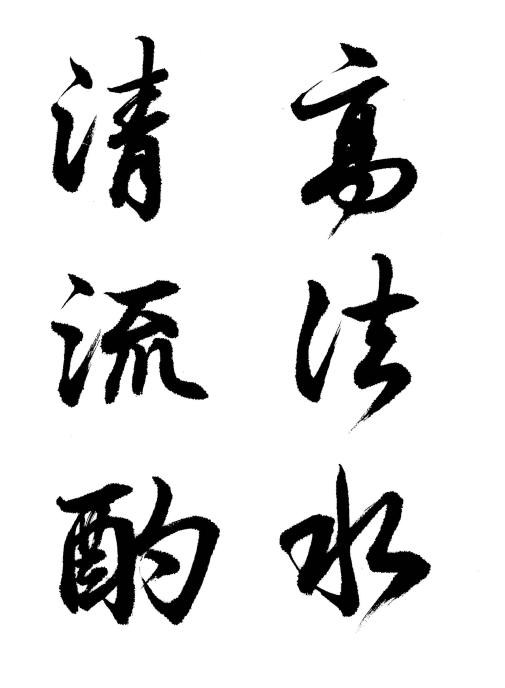 高法水
清流酌